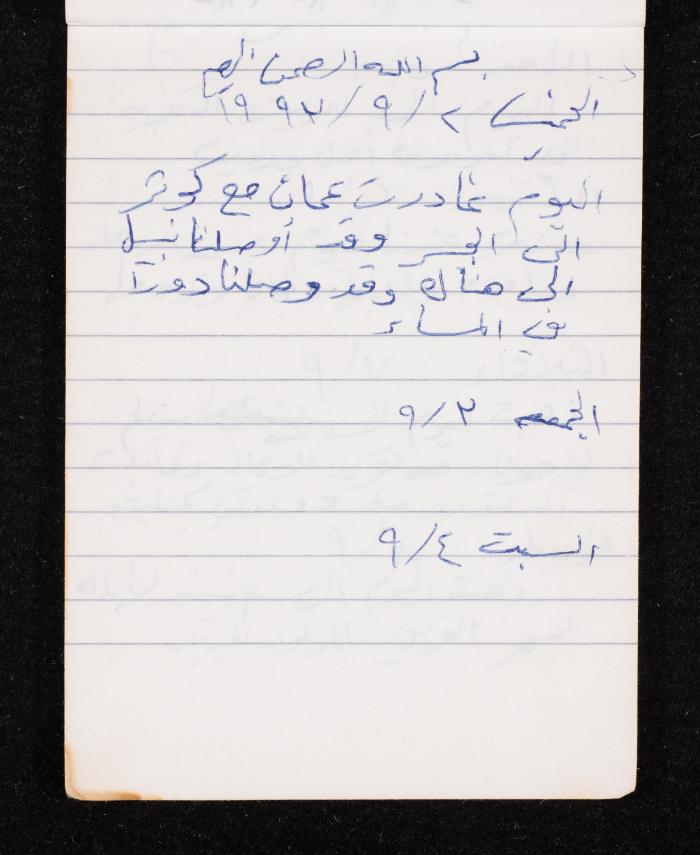 بسم الله الرحمن الرحيم
الخميس ٢/٩/١٩٩٣
اليوم غادرت عمان مع كوثر
الى الجسر وقد أوصلنا نبيل
الى هناك وقد وصلنا دورا
في المساء
الجمعه ٣/٩
السبت ٤/٩